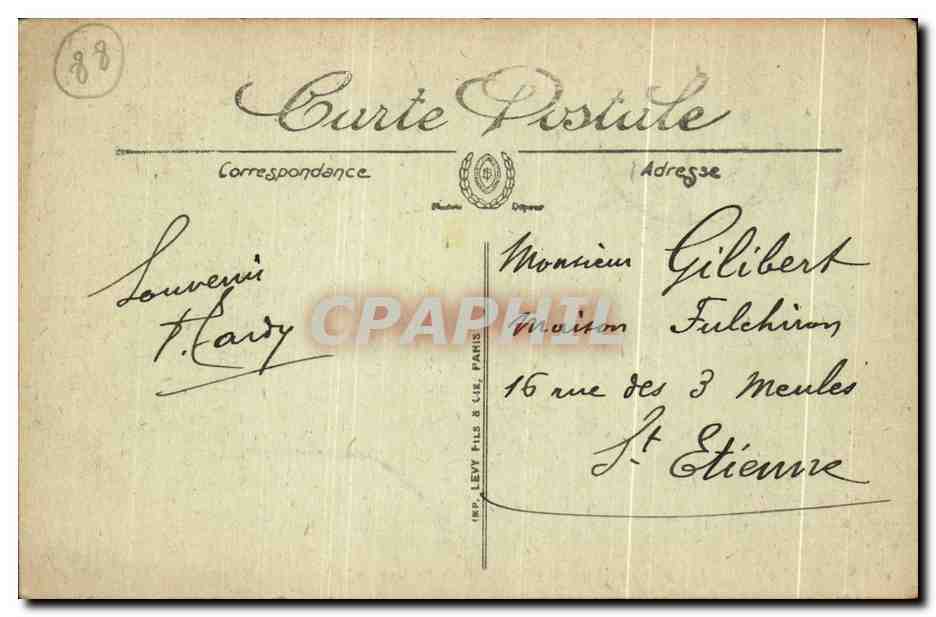 88
Carte Postale
Correspondance
Adresse
Souvenir
P. Tardy
Monsieur Gilibert
Maison Fulchiron
16 rue des 3 Meules
St Etienne
IMP. LEVY FILS & CIE, PARIS
CPAPHIL